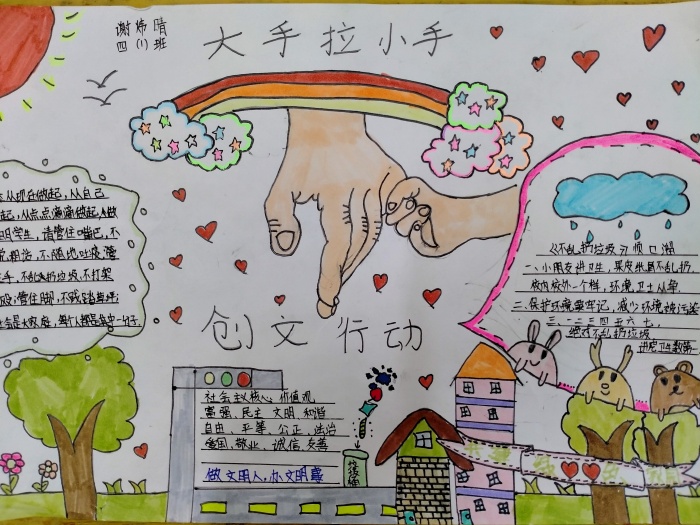 谢炜晴
四(1)班
大手拉小手
创文行动
从现在做起,从自己
起,从点点滴滴做起,做
明学生,请管住嘴巴,不
说粗话,不随地吐痰;管
手,不乱扔垃圾,不打架
殴;管住脚,不践踏草坪;
社会是大家庭,每个人都是
《不乱扔垃圾》顺口溜
一、小朋友讲卫生,果皮纸屑不乱扔
校内校外一个样,环境卫士从
二、保护环境要牢记,减少环境被污染
三、一二三四五六七,
不乱扔垃圾
社会主义核心价值观
富强、民主、文明、和谐
自由、平等、公正、法治
爱国、敬业、诚信、友善
做文明人,办文明事
垃圾桶